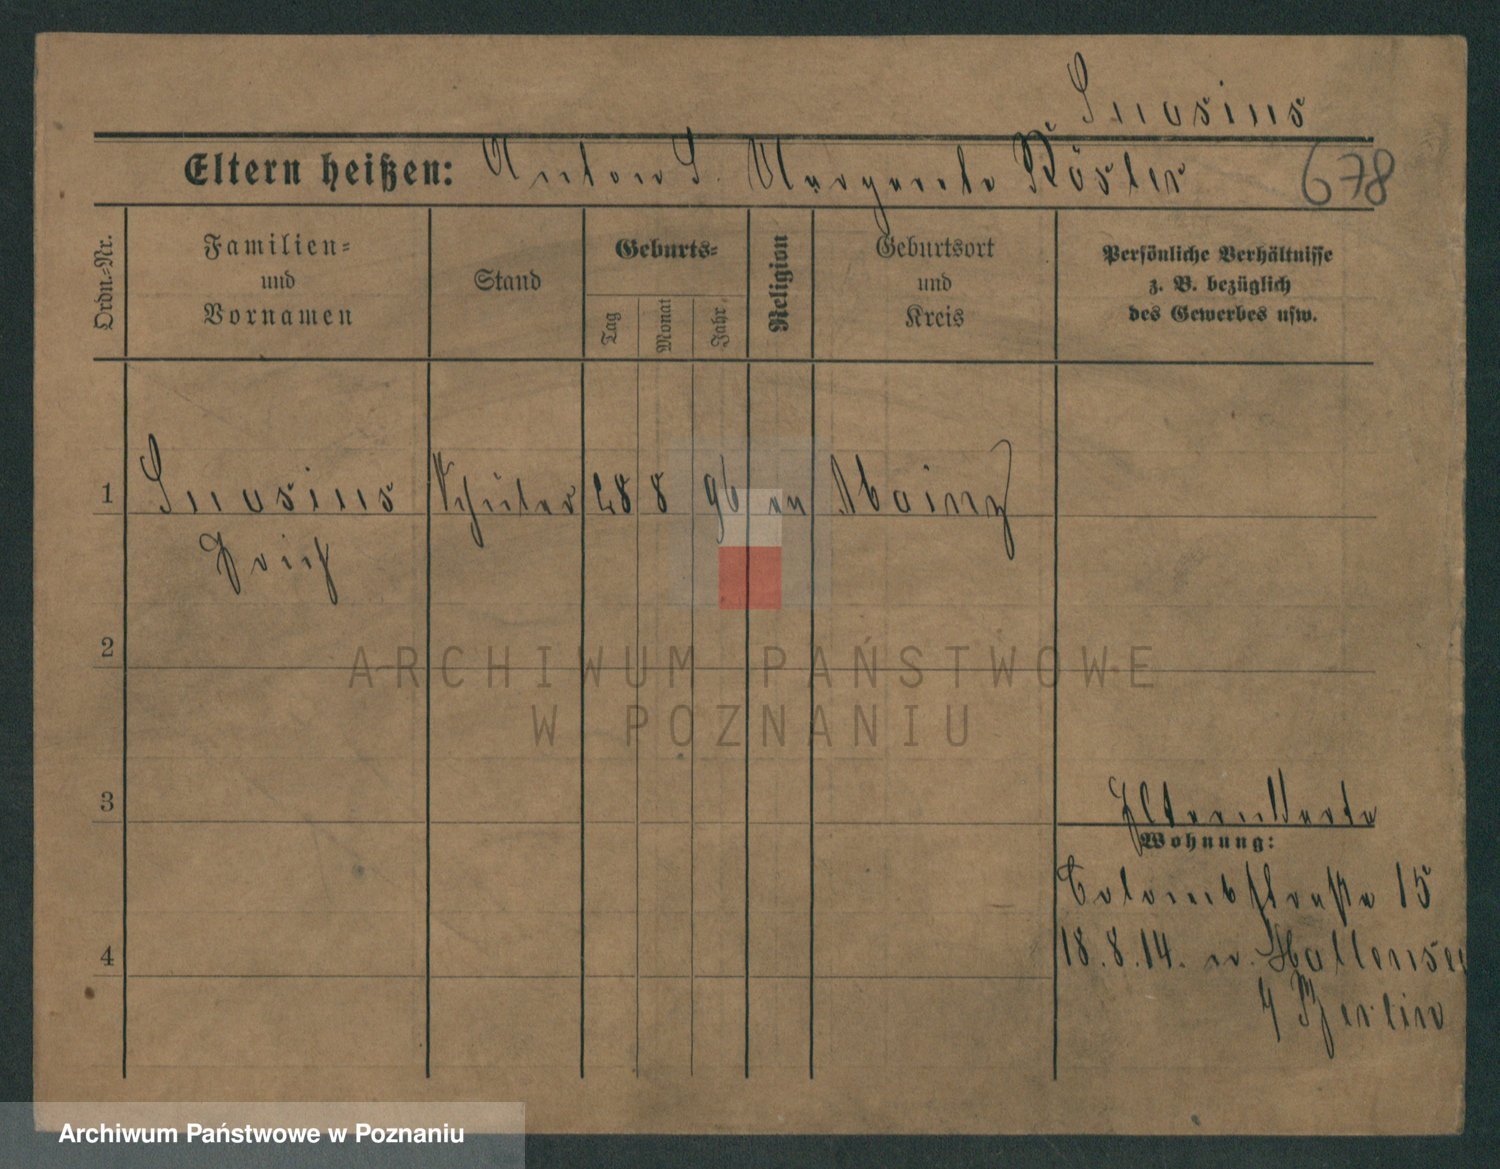 Snosius
Eltern heißen: Anton S. Margarete Köster
678
Ordn.-Nr.
Familien- und Vornamen
Stand
Geburts-
Tag
Monat
Jahr
Religion
Geburtsort und Kreis
Persönliche Verhältnisse z. B. bezüglich des Gewerbes usw.
1 Snosius Schüler 28 8 96 ev Mainz
Erich
2
3
4
Wohnung:
Colombstraße 15
18.8.14. n. Hallensee
/ Berlin
ARCHIWUM PAŃSTWOWE
W POZNANIU
Archiwum Państwowe w Poznaniu